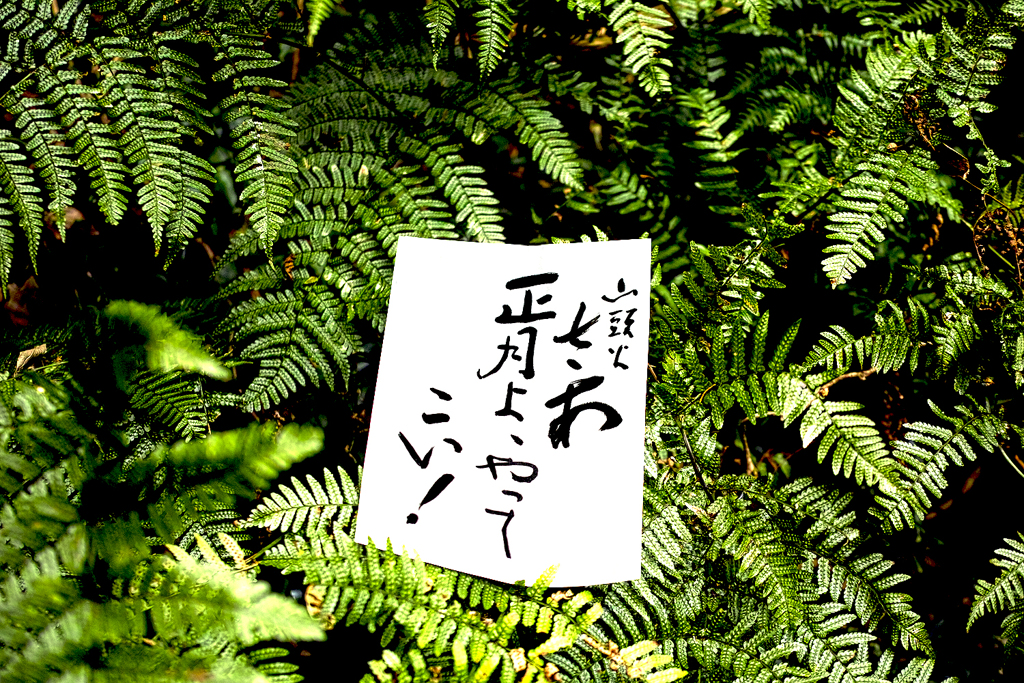 山頭火
正月よ、やって
こい!